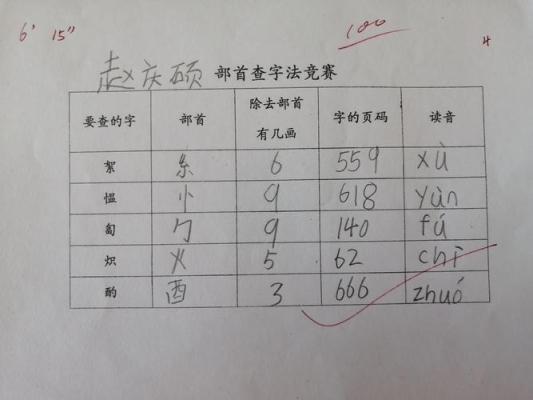 6' 15"
100
4
赵庆硕 部首查字法竞赛
要查的字 部首 除去部首有几画 字的页码 读音
絮 糸 6 559 xù
愠 忄 9 618 yùn
匐 勹 9 140 fú
炽 火 5 62 chì
酌 酉 3 666 zhuó